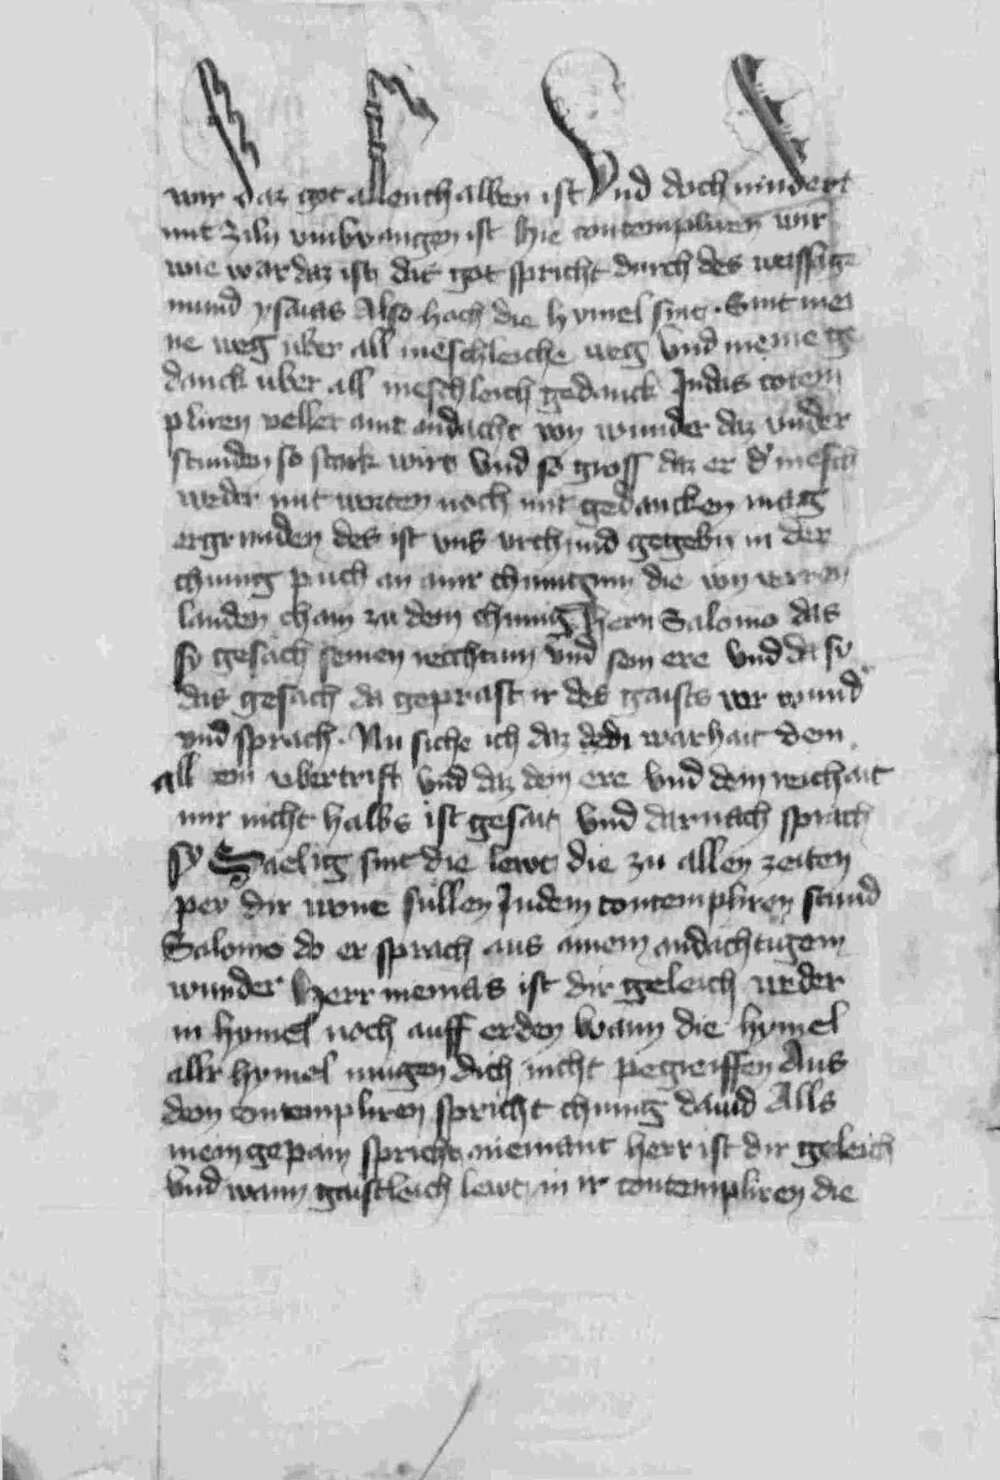 wir daz got allenthalben ist Und doch nindert
mit ziln umbvangen ist Hie contempliren wir
wie war daz ist daz got spricht durch des weissagē
mund ysaias Also hoch die hymel sint · Sint mei
ne weg uber all meschleiche weg Und meine ge
danck uber all meschleich gedanck In das cotem
pliren vellet ainr andacht von wunder daz under
stunden so stark wirt Und so gross daz er d' mesch
weder mit worten noch mit gedancken mag
ergrunden des ist uns urchund gegebn in der
chunig puch an ainr chuniginn die von verren
landen cham zu dem chunig Hern Salomo das
sy gesach seinen reichtum Und sein ere Und da sy
das gesach da geprast ir des gaists vor wund'
und sprach · Nu siche ich daz dein warhait dem
all ein ubertrift Und daz dein ere Und dein reichait
mir nicht halbs ist gesait Und darnach sprach
sy Saelig sint die lewt die zu allen zeiten
pey dir wone sullen In dem contempliren stund
Salomo do er sprach aus ainem andachtigem
wunder Herr niemas ist dir geleich weder
in hymel noch auff erden Wann die hymel
allr hymel mugen dich nicht pegreiffen Aus
dem contempliren spricht chunig david Alls
mein gepain spricht niemant herr ist dir geleich
Und wann gaistleich lewt in ir contempliren die